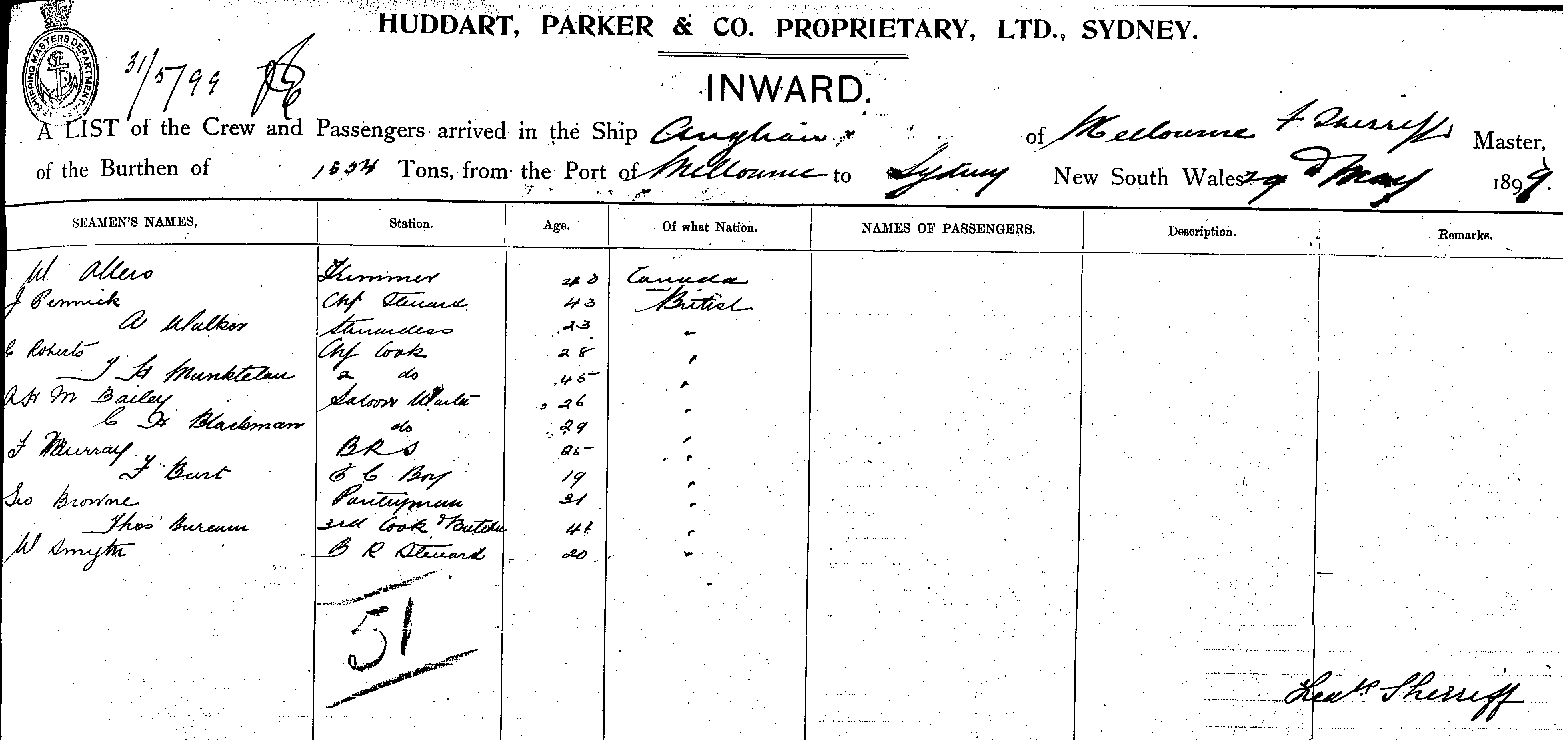 HUDDART, PARKER & CO. PROPRIETARY, LTD., SYDNEY.
SHIPPING MASTERS DEPARTMENT
31/5/99
INWARD.
A LIST of the Crew and Passengers arrived in the Ship Anglian of Melbourne F Sherriff Master,
of the Burthen of Tons, from the Port of Melbourne to Sydney New South Wales 29 d May 1899.
SEAMEN'S NAMES, Station. Age. Of what Nation. NAMES OF PASSENGERS. Description. Remarks.
W Allers Trimmer Canada
J Pennick Chf Steward 43 British
A Walker Stewardess 23 "
C Roberts Chf Cook 28 "
2 do 45 "
A H M Bailey Saloon Waiter 26 "
C H Blackman do 29 "
F Murray B R S 25 "
F Burt Boy 19 "
Geo Browne Pantryman 31 "
Thos 3rd Cook & Butcher "
W Smyth B R Steward 20 "
51
Sherriff